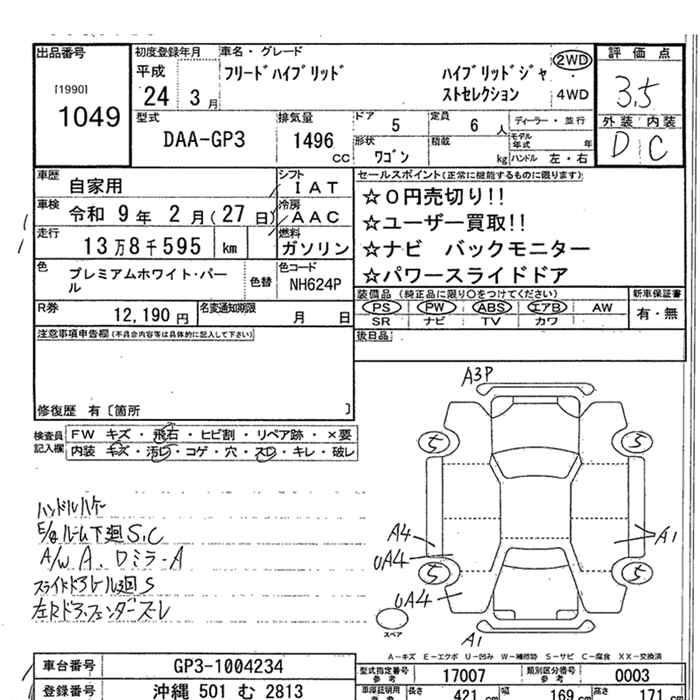 出品番号
[1990]
1049
初度登録年月
平成
24 3月
車名・グレード
フリードハイブリッド
ハイブリッドジャ
ストセレクション
2WD
4WD
評価点
3.5
外装 内装
D C
型式
DAA-GP3
排気量
1496
CC
ドア 5
定員 6 人
ディーラー・並行
形状 ワゴン
積載 kg
モデル年式 年
ハンドル 左・右
車歴 自家用
シフト IAT
車検 令和 9年 2月(27日)
冷房 AAC
走行 13万8千595 km
燃料 ガソリン
色 プレミアムホワイト・パール
色替
色コード NH624P
R券 12,190円
名変通知期限 月 日
セールスポイント(正常に機能するものに限ります)
☆0円売切り!!
☆ユーザー買取!!
☆ナビ バックモニター
☆パワースライドドア
装備品(純正品に限り〇をつけてください)
PS PW ABS エアB AW
SR ナビ TV カワ
新車保証書
有・無
注意事項申告欄(不具合内容等は具体的に記入して下さい)
後日品
修復歴 有〔箇所 〕
検査員記入欄
FW キズ・飛石・ヒビ割・リペア跡・×要
内装 キズ・汚レ・コゲ・穴・スレ・キレ・破レ
ハンドルハゲー
E/gルーム下廻S.C
A/W A、ロミラーA
スライドドアレール廻S
左Rドア.フェンダーズレ
A3P
5
5
A4
UA4
A1
5
5
UA4
スペア
A1
A－キズ E－エクボ U－凹み W－補修跡 S－サビ C－腐食 XX－交換済
車台番号 GP3-1004234
型式指定番号 参考 17007
類別区分番号 参考 0003
登録番号 沖縄 501 む 2813
長さ 421 cm
幅 169 cm
高さ 171 cm